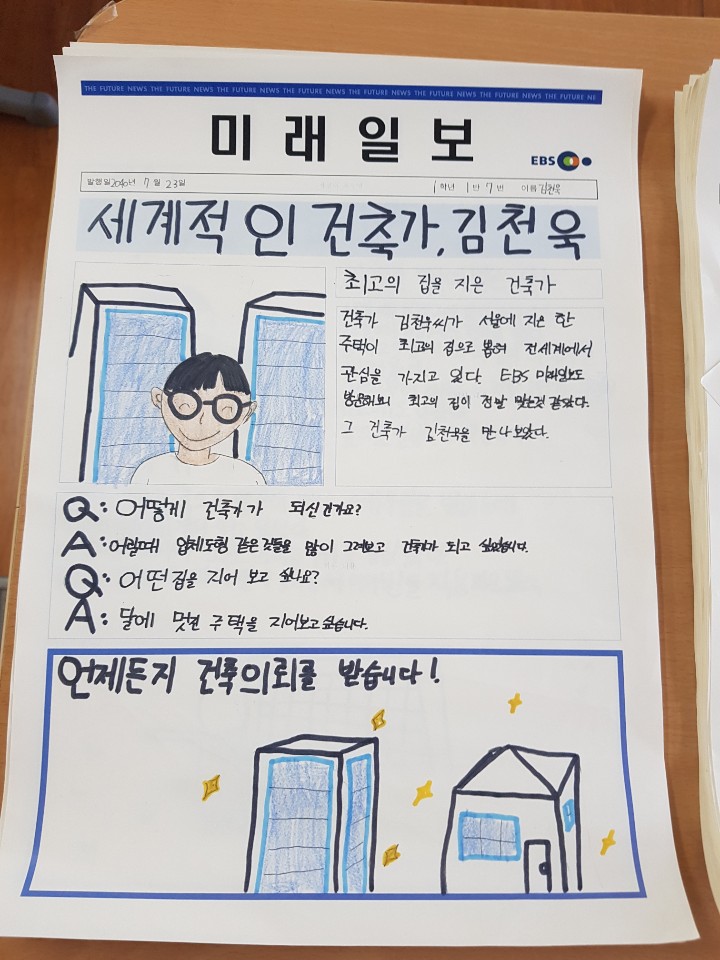 THE FUTURE NEWS THE FUTURE NEWS THE FUTURE NEWS THE FUTURE NEWS THE FUTURE NEWS THE FUTURE NEWS THE FUTURE NEWS THE FUTURE NE
미래일보
EBS
발행일 2040년 7월 23일 1학년 1반 7번 이름 김천욱
세계적인 건축가, 김천욱
최고의 집을 지은 건축가
건축가 김천욱씨가 서울에 지은 한
주택이 최고의 집으로 뽑혀 전세계에서
관심을 가지고 있다. EBS 미래일보도
방문해보니 최고의 집이 정말 맞는것 같았다.
그 건축가 김천욱을 만나보았다.
Q: 어떻게 건축가가 되신건가요?
A: 어릴때 입체도형 같은 것들을 많이 그려보고 건축가가 되고 싶었습니다.
Q: 어떤집을 지어 보고 싶나요?
A: 달에 멋진 주택을 지어보고싶습니다.
언제든지 건축의뢰를 받습니다!